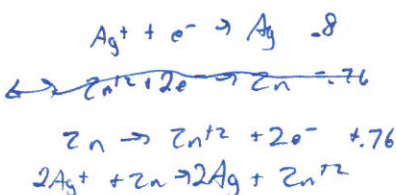 Ag⁺ + e⁻ → Ag .8
Zn⁺² + 2e⁻ → Zn -.76
Zn → Zn⁺² + 2e⁻ +.76
2Ag⁺ + Zn → 2Ag + Zn⁺²